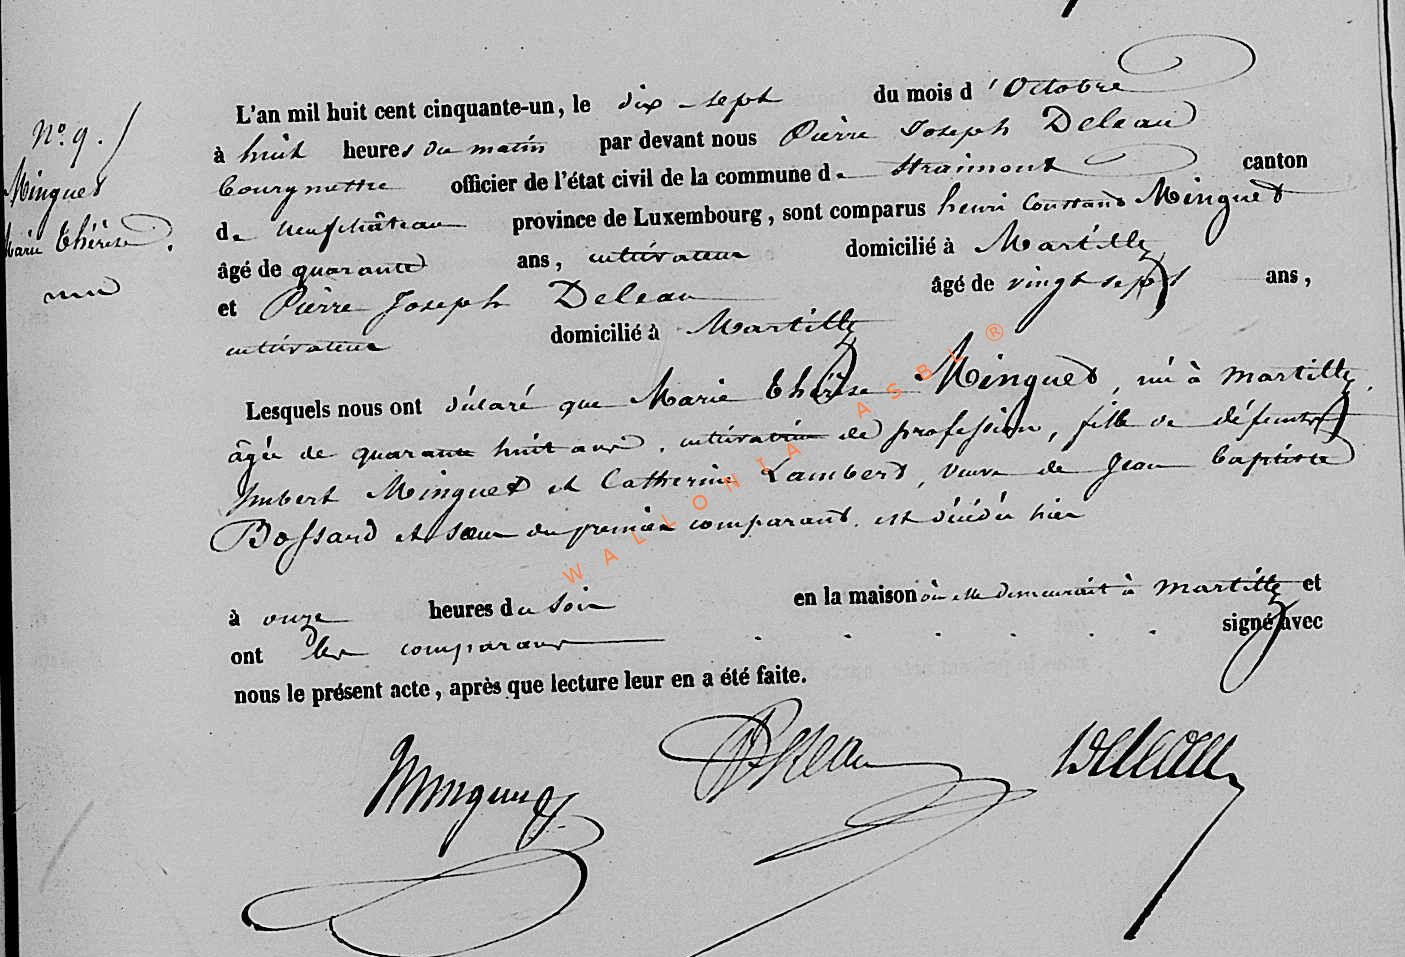 N° 9.
Minguet
Marie Thérèse.
L'an mil huit cent cinquante-un, le dix-sept du mois d'Octobre
à huit heures du matin par devant nous Pierre Joseph Deleau
bourgmettre officier de l'état civil de la commune de Straimont canton
de neufchâteau province de Luxembourg, sont comparus henri Constant Minguet
âgé de quarante ans, cultivateur domicilié à Martilly
et Pierre Joseph Deleau âgé de vingt sept ans,
cultivateur domicilié à Martilly
Lesquels nous ont déclaré que Marie Thérèse Minguet, née à martilly,
âgée de quarante huit ans, cultivatrice de profession, fille de défunts
humbert Minguet et Catherine Lambert, veuve de Jean baptiste
Bossard et sœur du premier comparant, est décédée hier
à onze heures du soir en la maison où elle demeurait à martilly et
ont les comparans signé avec
nous le présent acte, après que lecture leur en a été faite.
Minguet Deleau Deleau
WALLONIA ASBL ®